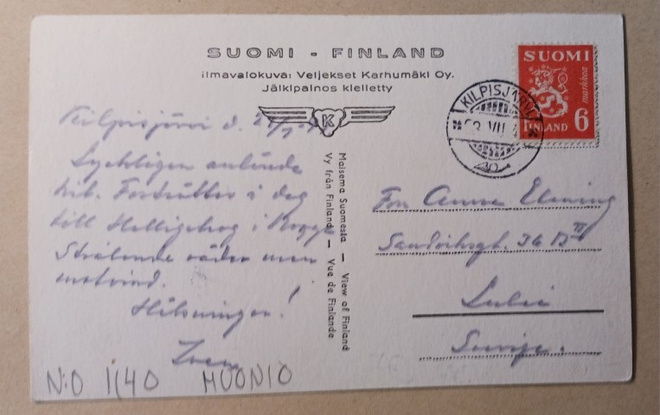 SUOMI - FINLAND
Ilmavalokuva: Veljekset Karhumäki Oy.
Jälkipainos kielletty
K
Kilpisjärvi d.
Lyckligen anlända
hit. Fortsätter i dag
till i Norge
Strålande väder men
motvind.
Hälsningar!
N:O 1(40 MUONIO
Maisema Suomesta — View of Finland
Vy från Finland — Vue de Finlande
SUOMI
markkaa
FINLAND 6
KILPISJÄRVI
VII
Fru Anna
36 B III
Luleå
Sverige.